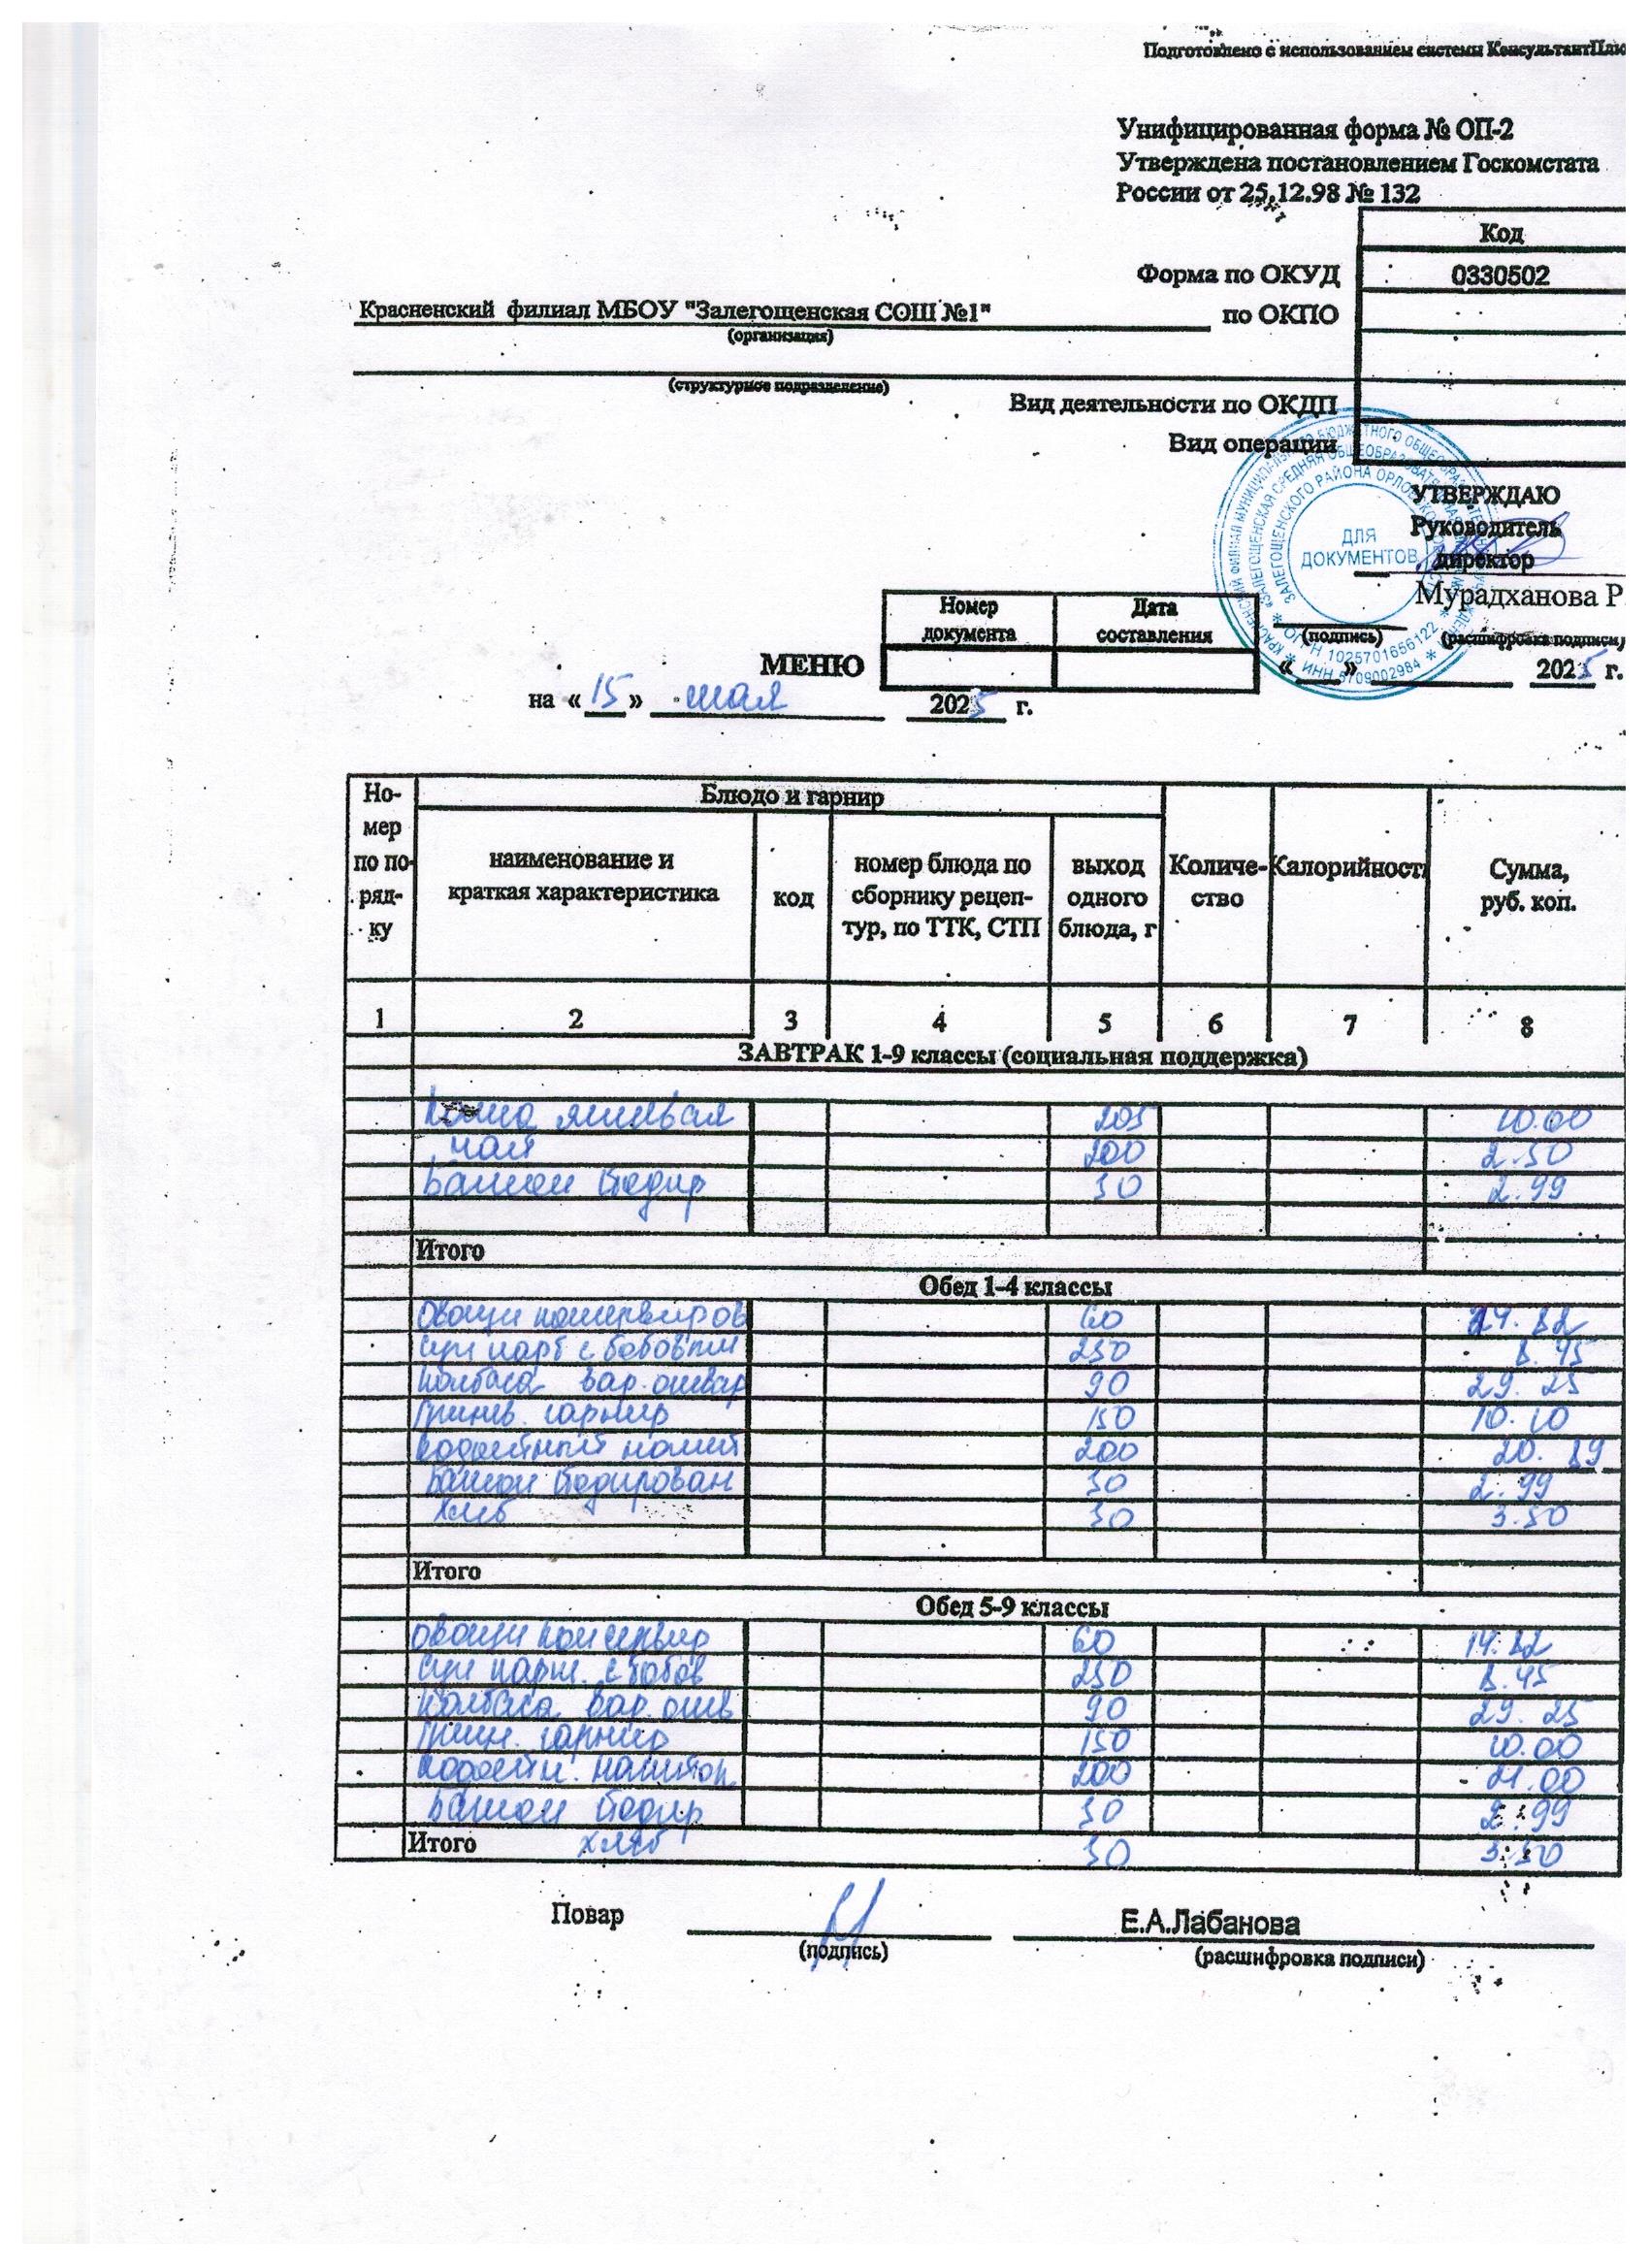 Подготовлено с использованием системы КонсультантПлю
Унифицированная форма № ОП-2
Утверждена постановлением Госкомстата
России от 25.12.98 № 132
Код
Форма по ОКУД 0330502
Красненский филиал МБОУ "Залегощенская СОШ №1" по ОКПО
(организация)
(структурное подразделение)
Вид деятельности по ОКДП
Вид операции
УТВЕРЖДАЮ
Руководитель
директор
Мурадханова Р.
(подпись) (расшифровка подписи)
« » 2025 г.
ДЛЯ
ДОКУМЕНТОВ
ОГРН 1025701656122
ИНН 5709002984
Номер документа Дата составления
МЕНЮ
на «15» мая 2025 г.
Но-мер по по-ряд-ку Блюдо и гарнир Количе-ство Калорийность Сумма, руб. коп.
наименование и краткая характеристика код номер блюда по сборнику рецеп-тур, по ТТК, СТП выход одного блюда, г
1 2 3 4 5 6 7 8
ЗАВТРАК 1-9 классы (социальная поддержка)
Каша 205 10.00
чай 200 2.50
Батон йодир 30 2.99
Итого
Обед 1-4 классы
Овощи консервиров 60 14.82
суп карт с бобовым 250 8.45
колбаса вар. отвар 90 29.25
гречнев. гарнир 150 10.10
200 20.89
Батон йодирован 30 2.99
Хлеб 30 3.50
Итого
Обед 5-9 классы
овощи консервир 60 14.82
суп карт. с бобов 250 8.45
колбаса вар. отв 90 29.25
гречн. гарнир 150 10.00
напиток 200 21.00
Батон йодир 30 2.99
Итого хлеб 30 3.50
Повар Е.А.Лабанова
(подпись) (расшифровка подписи)